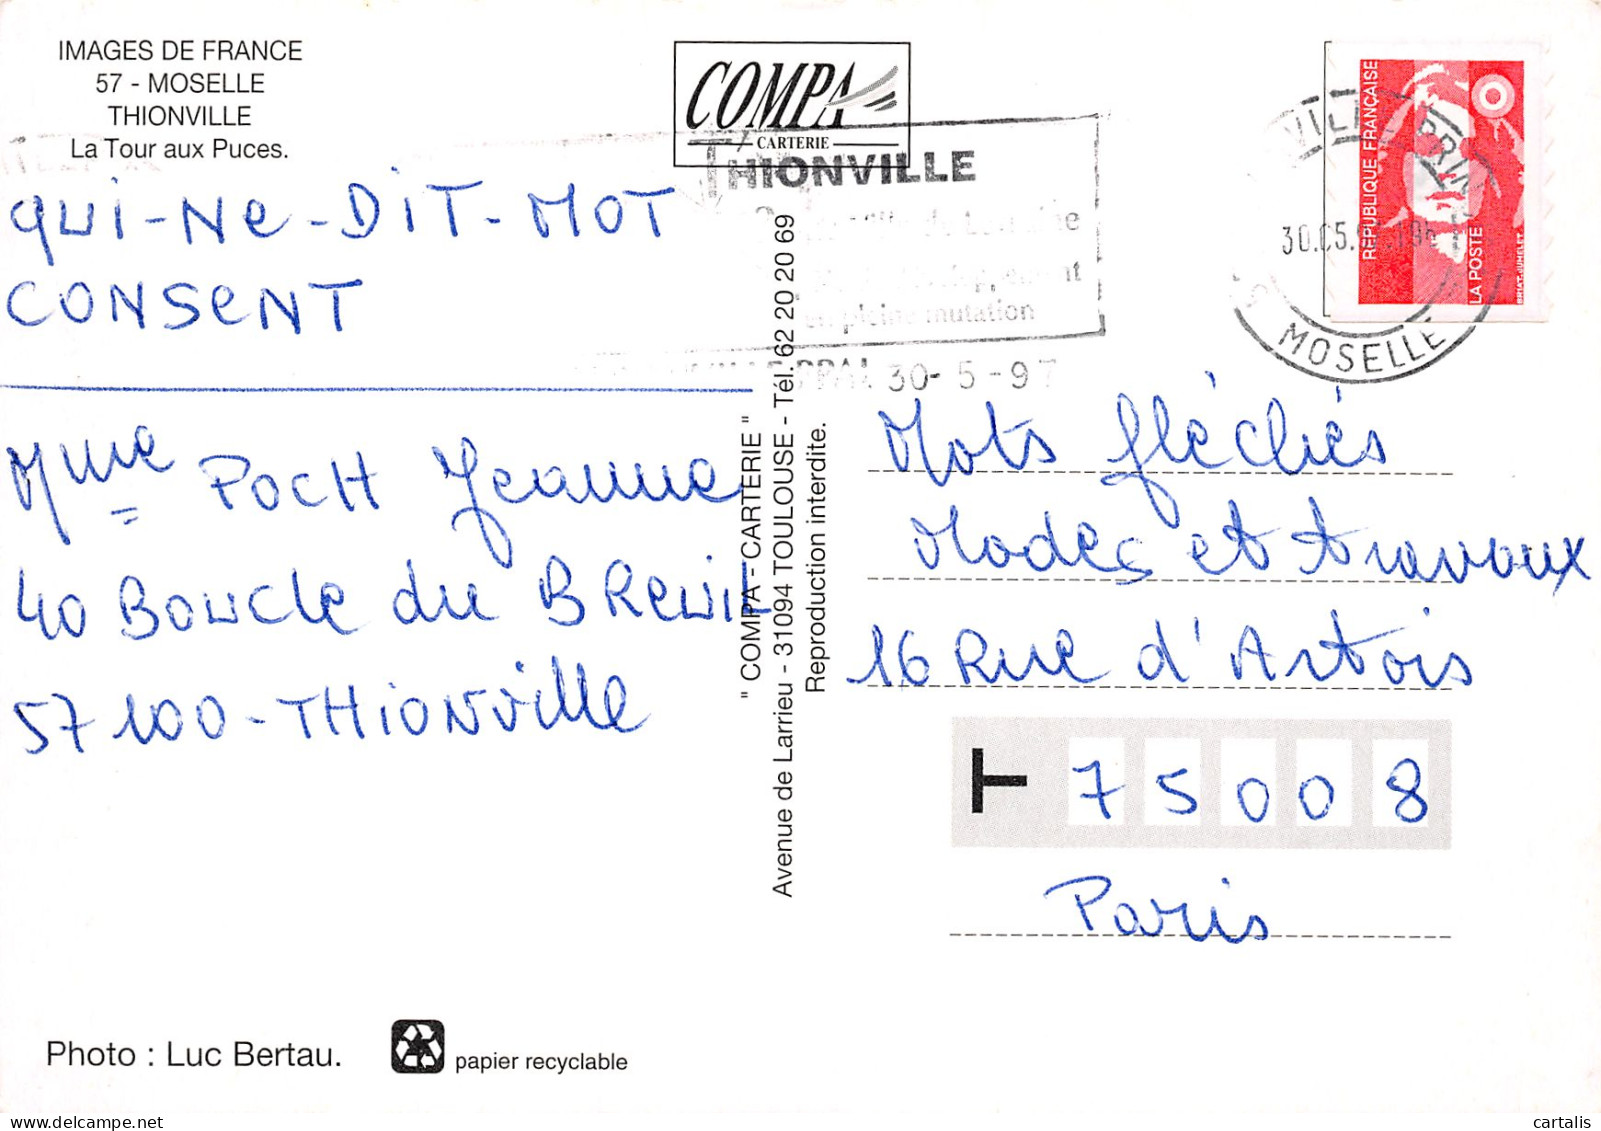 IMAGES DE FRANCE
57 - MOSELLE
THIONVILLE
La Tour aux Puces.
COMPA
CARTERIE
QUI-NE-DIT-MOT
CONSENT
Mme POCH Jeanne
40 BOUCLE du BREUIL
57100-THIONVILLE
Photo : Luc Bertau.
papier recyclable
" COMPA - CARTERIE "
Avenue de Larrieu - 31094 TOULOUSE - Tél. 62 20 20 69
Reproduction interdite.
THIONVILLE
en pleine mutation
PPAL 30-5-97
RÉPUBLIQUE FRANÇAISE
LA POSTE
BRIAT.JUMELET
30.05.
MOSELLE
Mots fléchés
Modes et travaux
16 Rue d'Artois
T 75008
Paris
cartalis